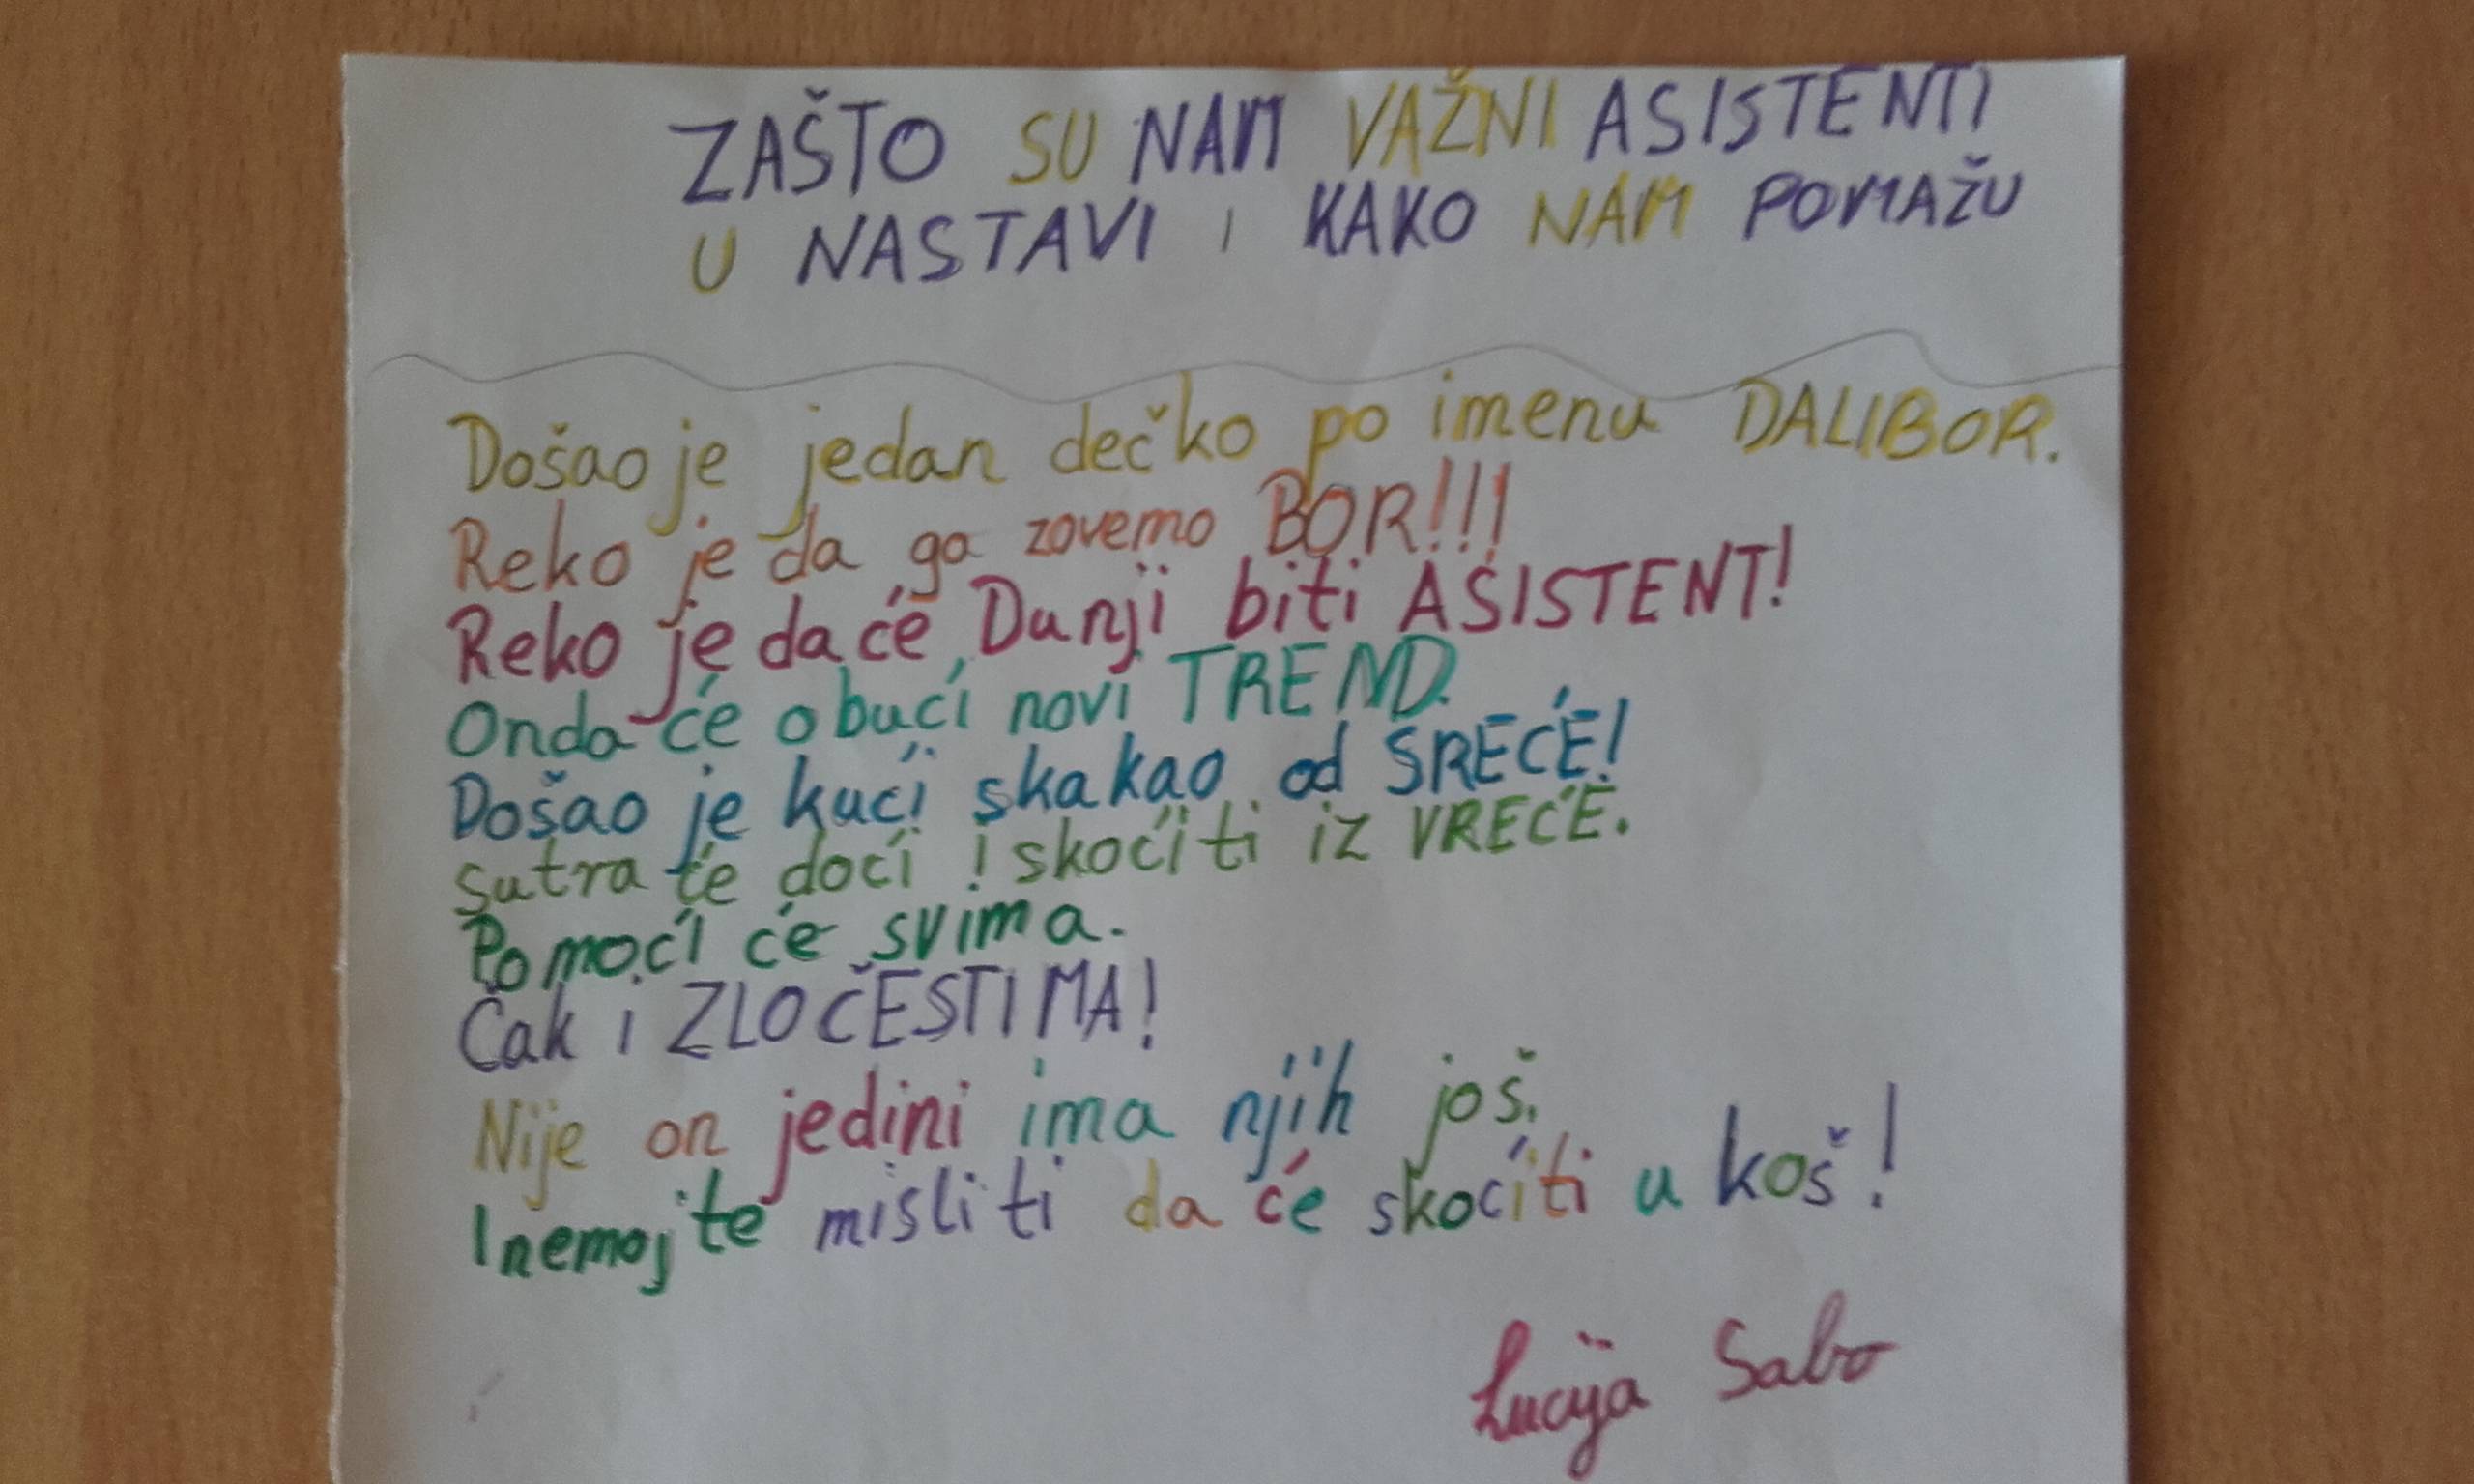 ZAŠTO SU NAM VAŽNI ASISTENTI
U NASTAVI I KAKO NAM POMAŽU
Došao je jedan dečko po imenu DALIBOR.
Reko je da ga zovemo BOR!!!
Reko je da će Dunji biti ASISTENT!
Onda će obući novi TREND.
Došao je kući skakao od SREĆE!
Sutra će doći i skoćiti iz VREĆE.
Pomoći će svima.
Čak i ZLOČESTIMA!
Nije on jedini ima njih još.
I nemojte misliti da će skoćiti u koš!
Lucija Sabo